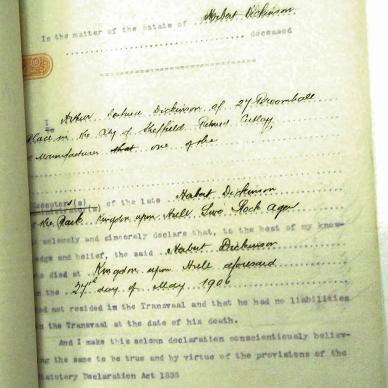 In the matter of the estate of Herbert Dickinson
deceased
I Arthur Dickinson of 27 Broomhall
Place in the City of Sheffield Retired Cutlery
Manufacturer that one of the
Executor(s) of the late Herbert Dickinson
Kingdon upon Hull Live Stock Agent
solemnly and sincerely declare that, to the best of my know-
ledge and belief, the said Herbert Dickinson
who died at Kingdon upon Hull aforesaid
on the 27th day of May 1906
had not resided in the Transvaal and that he had no liabilities
in the Transvaal at the date of his death.
And I make this solemn declaration conscientiously believ-
ing the same to be true and by virtue of the provisions of the
Statutory Declaration Act 1835